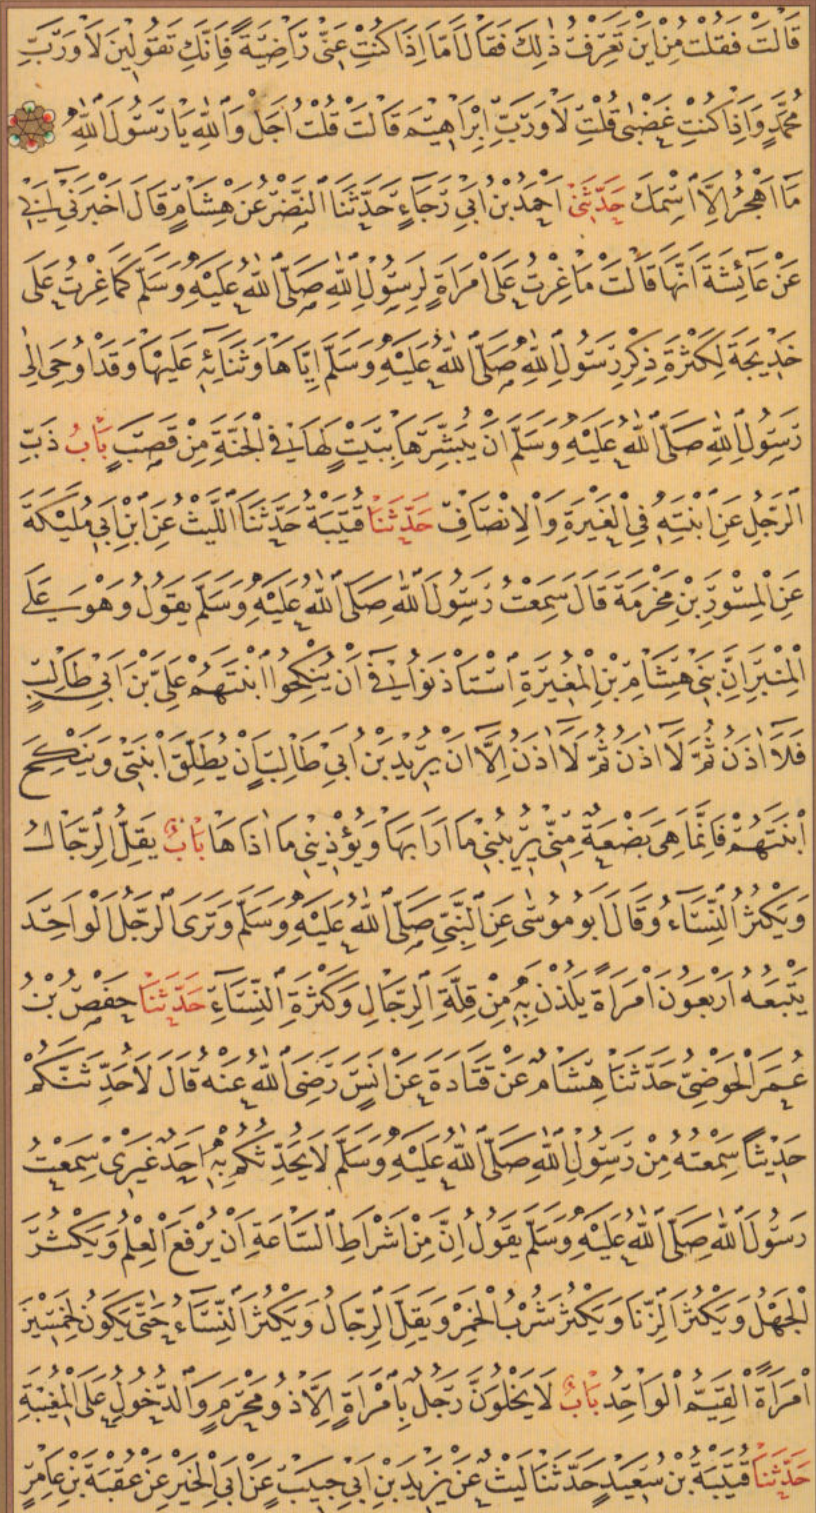 قَالَتْ فَقُلْتُ مِنْ اَيْنَ تَعْرِفُ ذٰلِكَ فَقَالَ اَمَّا اِذَا كُنْتِ عَنّٖى رَاضِيَةً فَاِنَّكِ تَقُولٖينَ لَا وَرَبِّ
مُحَمَّدٍ وَاِذَا كُنْتِ غَضْبٰى قُلْتِ لَا وَرَبِّ اِبْرَاهٖيمَ قَالَتْ قُلْتُ اَجَلْ وَاللّٰهِ يَا رَسُولَ اللّٰهِ
مَا اَهْجُرُ اِلَّا اسْمَكَ حَدَّثَنٖى اَحْمَدُ بْنُ اَبٖى رَجَاءٍ حَدَّثَنَا النَّضْرُ عَنْ هِشَامٍ قَالَ اَخْبَرَنٖى اَبٖى
عَنْ عَائِشَةَ اَنَّهَا قَالَتْ مَا غِرْتُ عَلَى امْرَاَةٍ لِرَسُولِ اللّٰهِ صَلَّى اللّٰهُ عَلَيْهِ وَسَلَّمَ كَمَا غِرْتُ عَلَى
خَدٖيجَةَ لِكَثْرَةِ ذِكْرِ رَسُولِ اللّٰهِ صَلَّى اللّٰهُ عَلَيْهِ وَسَلَّمَ اِيَّاهَا وَثَنَائِهٖ عَلَيْهَا وَقَدْ اُوحِىَ اِلٰى
رَسُولِ اللّٰهِ صَلَّى اللّٰهُ عَلَيْهِ وَسَلَّمَ اَنْ يُبَشِّرَهَا بِبَيْتٍ لَهَا فِى الْجَنَّةِ مِنْ قَصَبٍ بَابُ ذَبِّ
الرَّجُلِ عَنِ ابْنَتِهٖ فِى الْغَيْرَةِ وَالْاِنْصَافِ حَدَّثَنَا قُتَيْبَةُ حَدَّثَنَا اللَّيْثُ عَنِ ابْنِ اَبٖى مُلَيْكَةَ
عَنِ الْمِسْوَرِ بْنِ مَخْرَمَةَ قَالَ سَمِعْتُ رَسُولَ اللّٰهِ صَلَّى اللّٰهُ عَلَيْهِ وَسَلَّمَ يَقُولُ وَهُوَ عَلَى
الْمِنْبَرِ اِنَّ بَنٖى هِشَامِ بْنِ الْمُغٖيرَةِ اسْتَاْذَنُوا فٖى اَنْ يُنْكِحُوا ابْنَتَهُمْ عَلِىَّ بْنَ اَبٖى طَالِبٍ
فَلَا اٰذَنُ ثُمَّ لَا اٰذَنُ ثُمَّ لَا اٰذَنُ اِلَّا اَنْ يُرٖيدَ بْنُ اَبٖى طَالِبٍ اَنْ يُطَلِّقَ ابْنَتٖى وَيَنْكِحَ
ابْنَتَهُمْ فَاِنَّمَا هِىَ بَضْعَةٌ مِنّٖى يُرٖيبُنٖى مَا اَرَابَهَا وَيُؤْذٖينٖى مَا اٰذَاهَا بَابٌ يَقِلُّ الرِّجَالُ
وَيَكْثُرُ النِّسَاءُ وَقَالَ اَبُو مُوسٰى عَنِ النَّبِىِّ صَلَّى اللّٰهُ عَلَيْهِ وَسَلَّمَ وَتَرَى الرَّجُلَ الْوَاحِدَ
يَتْبَعُهُ اَرْبَعُونَ امْرَاَةً يَلُذْنَ بِهٖ مِنْ قِلَّةِ الرِّجَالِ وَكَثْرَةِ النِّسَاءِ حَدَّثَنَا حَفْصُ بْنُ
عُمَرَ الْحَوْضِىُّ حَدَّثَنَا هِشَامٌ عَنْ قَتَادَةَ عَنْ اَنَسٍ رَضِىَ اللّٰهُ عَنْهُ قَالَ لَاُحَدِّثَنَّكُمْ
حَدٖيثًا سَمِعْتُهُ مِنْ رَسُولِ اللّٰهِ صَلَّى اللّٰهُ عَلَيْهِ وَسَلَّمَ لَا يُحَدِّثُكُمْ بِهٖ اَحَدٌ غَيْرٖى سَمِعْتُ
رَسُولَ اللّٰهِ صَلَّى اللّٰهُ عَلَيْهِ وَسَلَّمَ يَقُولُ اِنَّ مِنْ اَشْرَاطِ السَّاعَةِ اَنْ يُرْفَعَ الْعِلْمُ وَيَكْثُرَ
الْجَهْلُ وَيَكْثُرَ الزِّنَا وَيَكْثُرَ شُرْبُ الْخَمْرِ وَيَقِلَّ الرِّجَالُ وَيَكْثُرَ النِّسَاءُ حَتّٰى يَكُونَ لِخَمْسٖينَ
امْرَاَةً الْقَيِّمُ الْوَاحِدُ بَابٌ لَا يَخْلُوَنَّ رَجُلٌ بِامْرَاَةٍ اِلَّا ذُو مَحْرَمٍ وَالدُّخُولِ عَلَى الْمُغٖيبَةِ
حَدَّثَنَا قُتَيْبَةُ بْنُ سَعٖيدٍ حَدَّثَنَا لَيْثٌ عَنْ يَزٖيدَ بْنِ اَبٖى حَبٖيبٍ عَنْ اَبِى الْخَيْرِ عَنْ عُقْبَةَ بْنِ عَامِرٍ